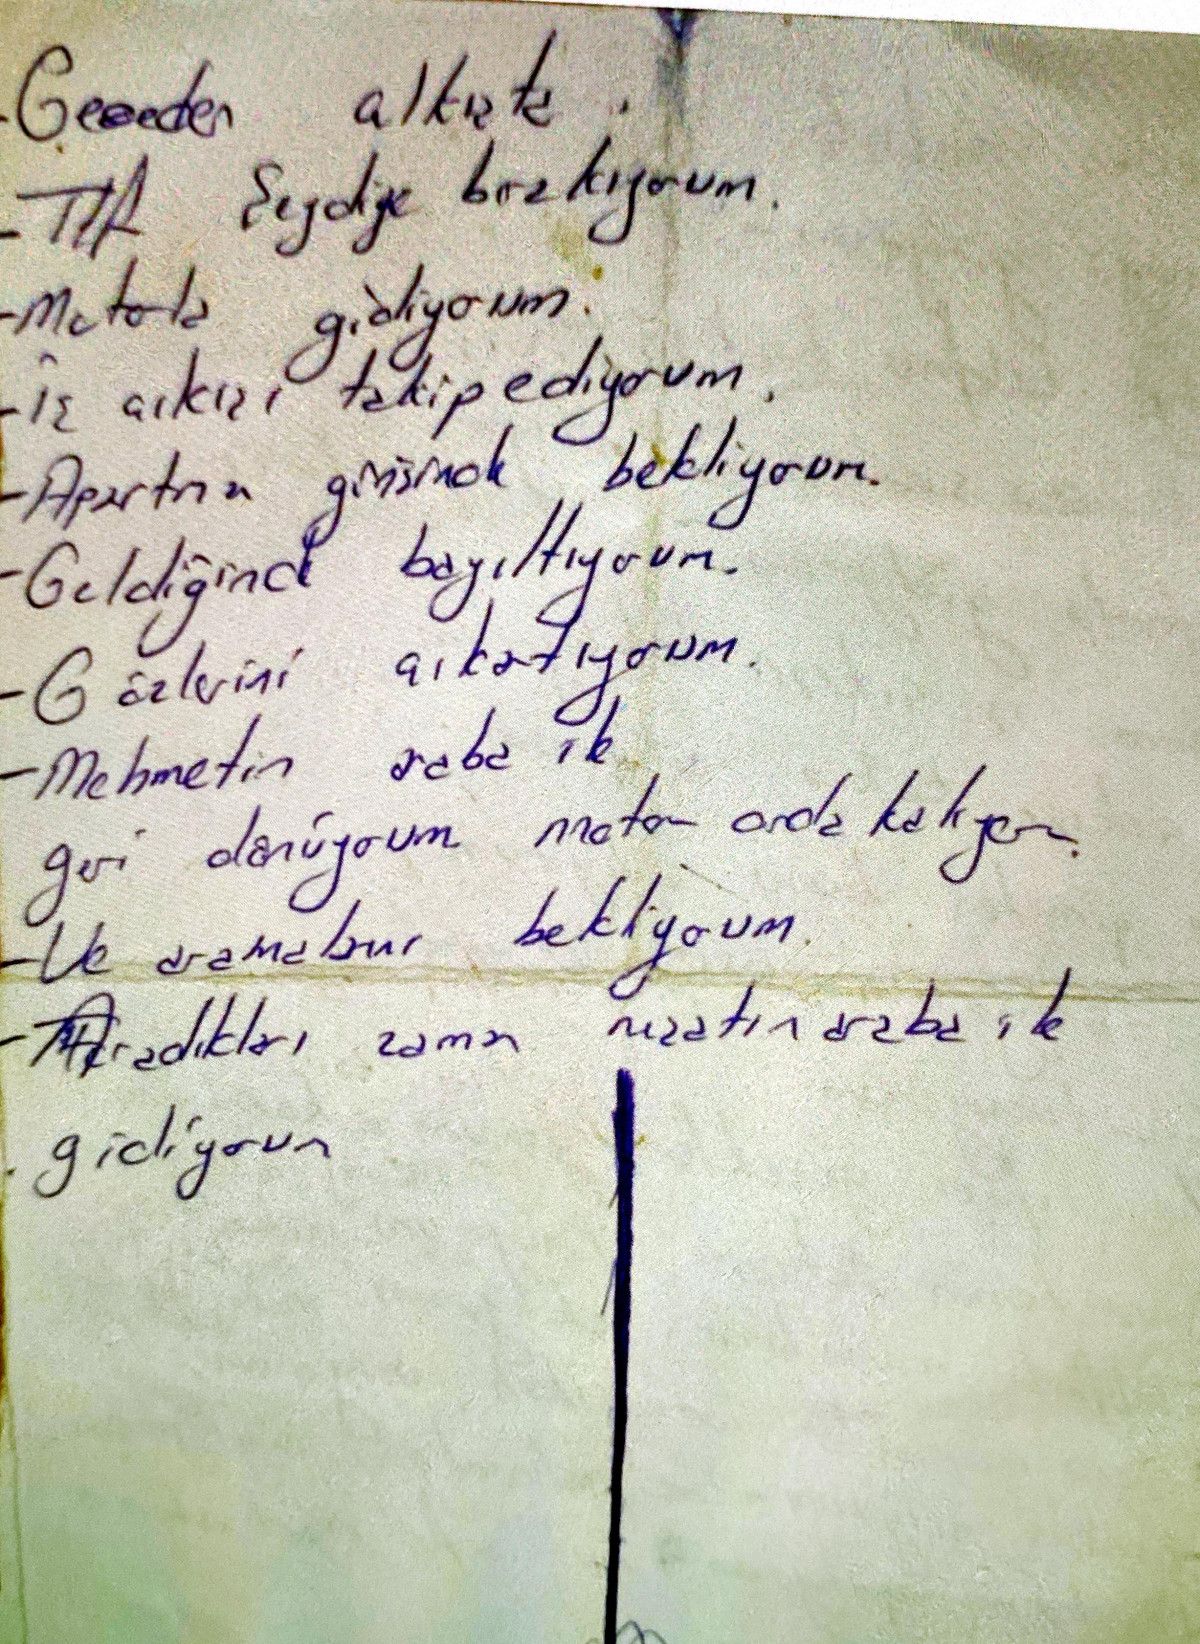 -Geceden alkışta.
-TIR Seydiye bırakıyorum.
-Motorla gidiyorum.
-İş çıkışı takip ediyorum.
-Apartmn girişinde bekliyorum.
-Geldiğinde bayıltıyorum.
-Gözlerini çıkartıyorum.
-Mehmetin araba ile
geri dönüyorum motor orda kalıyor.
-Ve aramalarını bekliyorum.
-Aradıkları zaman araba ile
gidiyorum